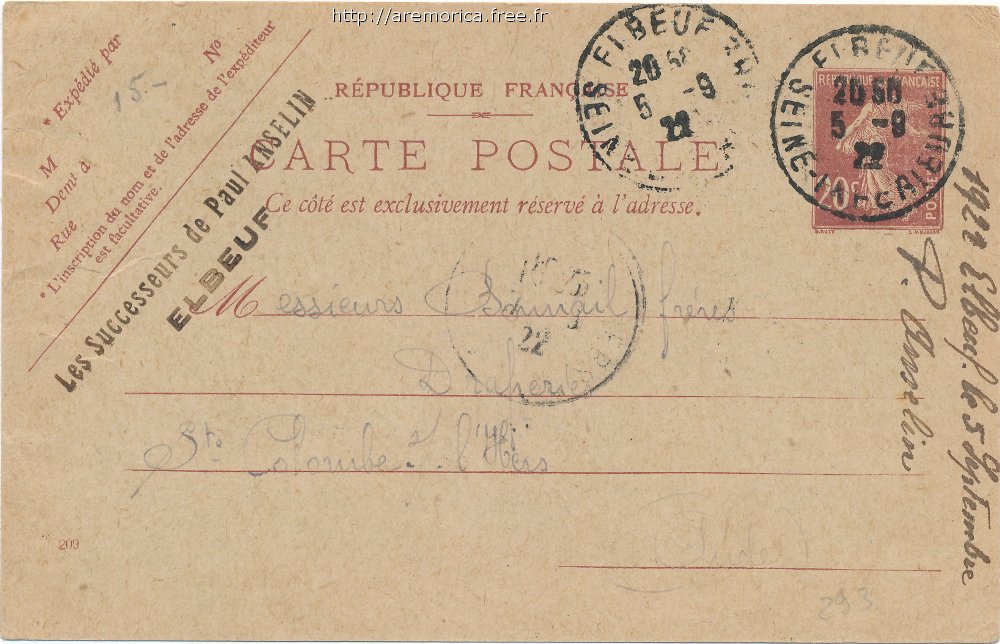 http://aremorica.free.fr
* Expédié par
No
M
Demt à
Rue
* L'inscription du nom et de l'adresse de l'expéditeur
est facultative.
15.-
Les Successeurs de Paul ANSELIN
ELBEUF
RÉPUBLIQUE FRANÇAISE
CARTE POSTALE
Ce côté est exclusivement réservé à l'adresse.
ELBEUF
20
5 -9
22
ELBEUF
20 50
5 -9
22
SEINE-INFERIEURE
RÉPUBLIQUE FRANÇAISE
20c
Messieurs frères
Draperies
Ste Colombe s. l'Hers
(Aude)
22
1922 Elbeuf. le 5 Septembre
P. Ansselin
209
293